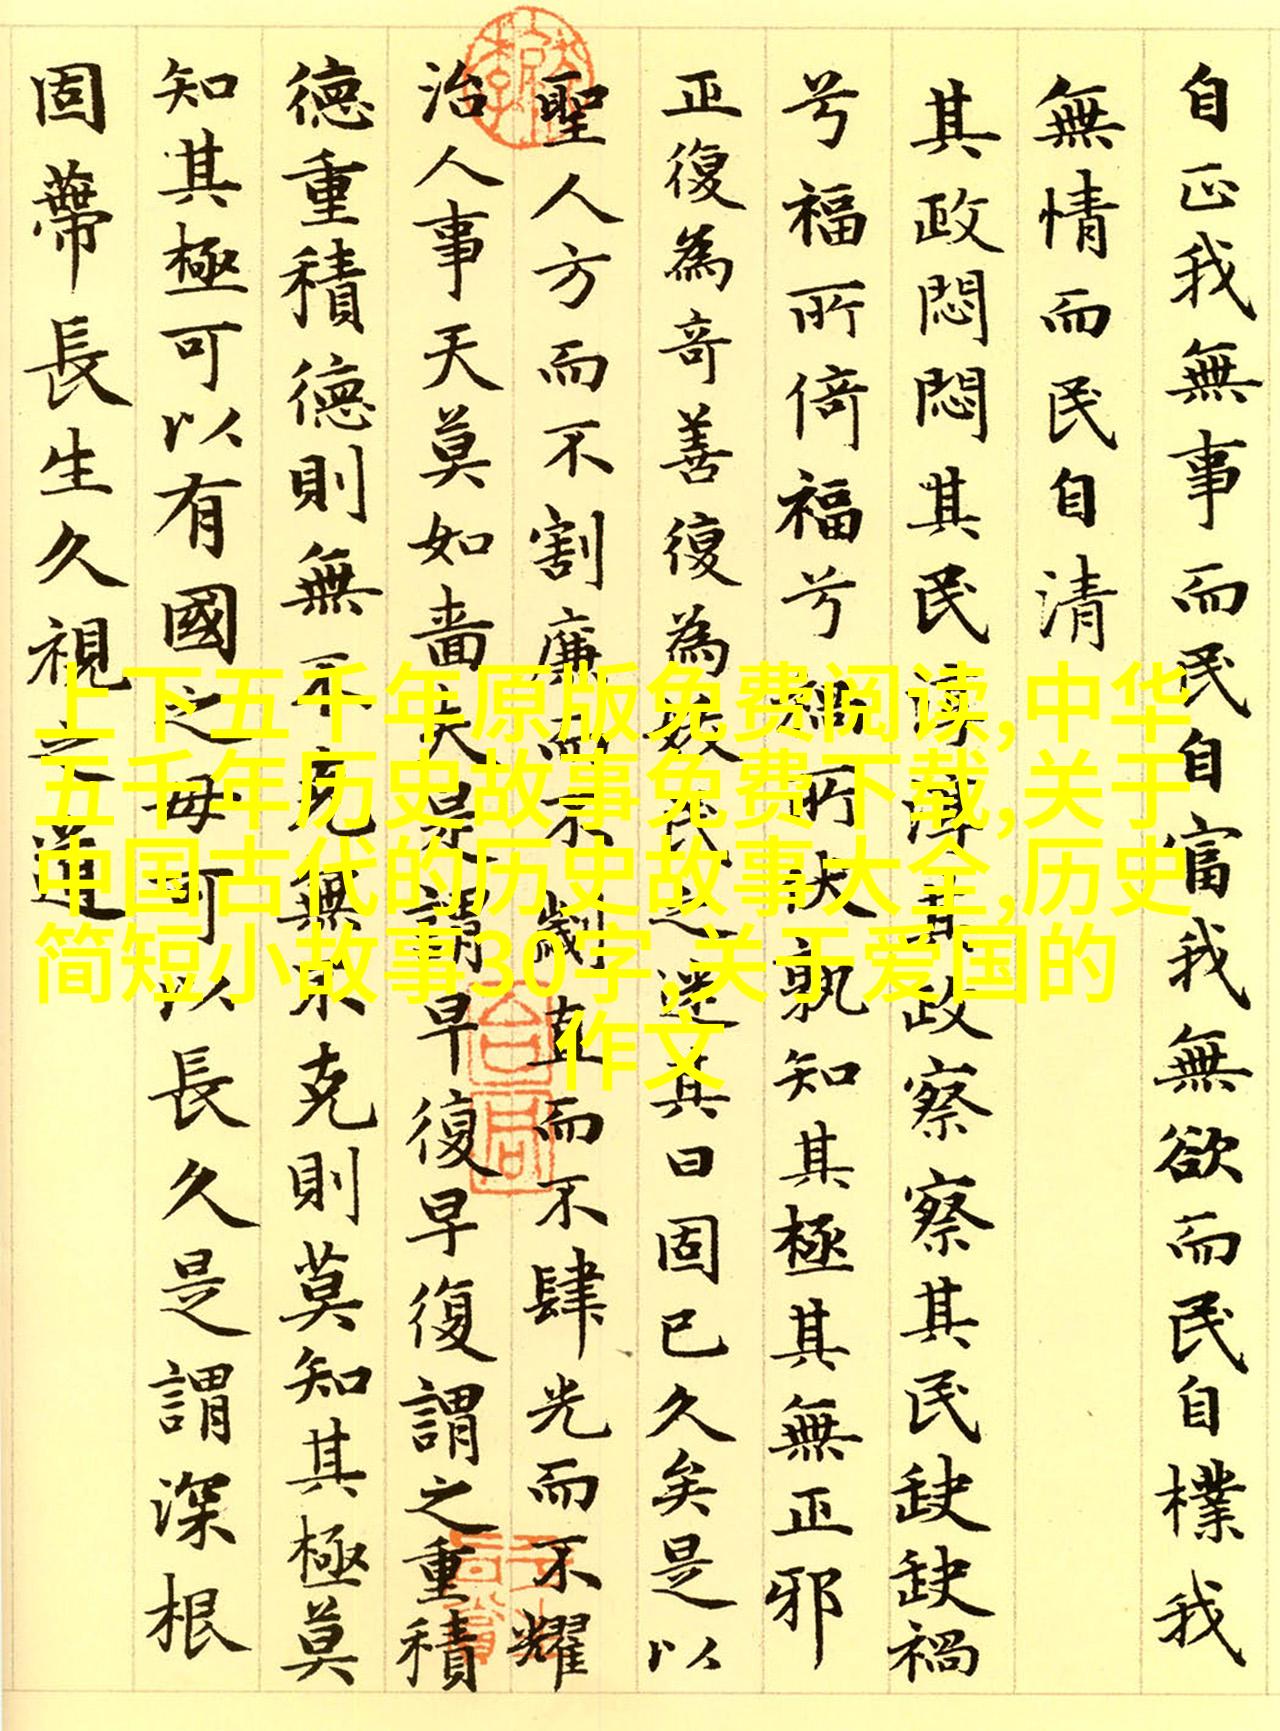 自正我無事而民自富我無欲而民自樸我
無情而民自清
其政悶悶其民淳淳其政察察其民缺缺禍
兮福所倚福兮禍所伏孰知其極其無正邪
正復為奇善復為妖民之迷其日固已久矣是以
聖人方而不割廉而不劌直而不肆光而不耀
治人事天莫如嗇夫是謂早復早復謂之重積
德重積德則無不克無不克則莫知其極莫
知其極可以有國之母可以長久是謂深根
固蔕長生久視之道
上下五千年原版免费阅读,中华
五千年历史故事免费下载,关于
中国古代的历史故事大全,历史
简短小故事30字,关于爱国的
作文